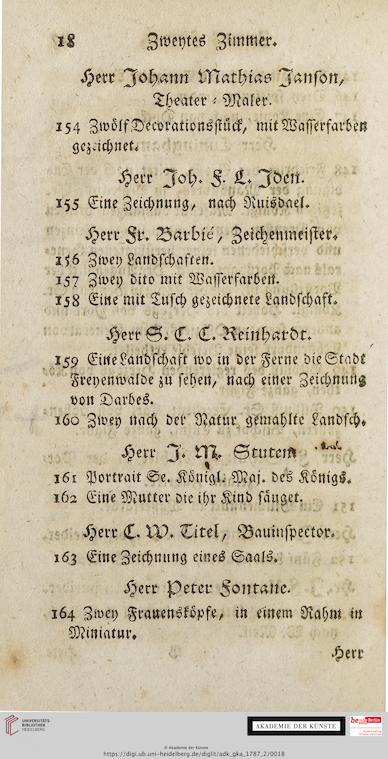 18 Zweytes Zimmer.
Herr Johann Mathias Janson,
Theater-Maler.
154 Zwölf Decorationsstück, mit Wasserfarben
gezeichnet.
Herr Joh. F. L. Iden.
155 Eine Zeichnung, nach Ruisdael.
Herr Fr. Barbié, Zeichenmeister.
156 Zwey Landschaften.
157 Zwey dito mit Wasserfarben.
158 Eine mit Tusch gezeichnete Landschaft.
Herr S. C. C. Reinhardt.
159 Eine Landschaft wo in der Ferne die Stadt
Freyenwalde zu sehen, nach einer Zeichnung
von Darbes.
160 Zwey nach der Natur gemahlte Landsch.
Herr J. M. Stutem
161 Portrait Se. Königl. Maj. des Königs.
162 Eine Mutter die ihr Kind säuget.
Herr C. W. Titel, Bauinspector.
163 Eine Zeichnung eines Saals.
Herr Peter Fontane.
164 Zwey Frauensköpfe, in einem Rahm in
Miniatur.
Herr
UNIVERSITÄTS-
BIBLIOTHEK
HEIDELBERG
AKADEMIE DER KÜNSTE
be Berlin
© Akademie der Künste
https://digi.ub.uni-heidelberg.de/diglit/adk_gka_1787_2/0018